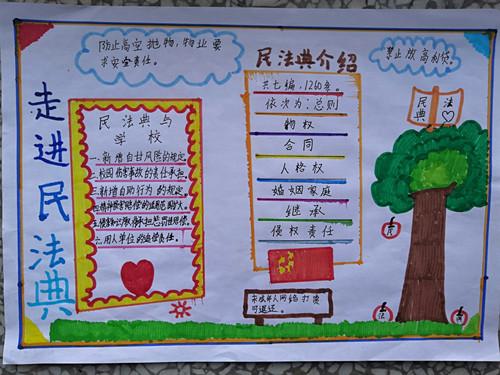 走进民法典
防止高空抛物，物业要
求安全责任。
民法典与
学校
一.新增自甘风医的规定
二.校园伤害事故的责任承担.
三.新增自助行为的规定.
四.精神损害赔偿的法规范围扩大.
六.用人单位的追偿责任.
民法典介绍
共七编，1260条。
依次为：总则
物权
合同
人格权
婚姻家庭
继承
侵权责任
未成年人网络打赏
可退还。
禁止放高利贷。
民 法
典
民
法